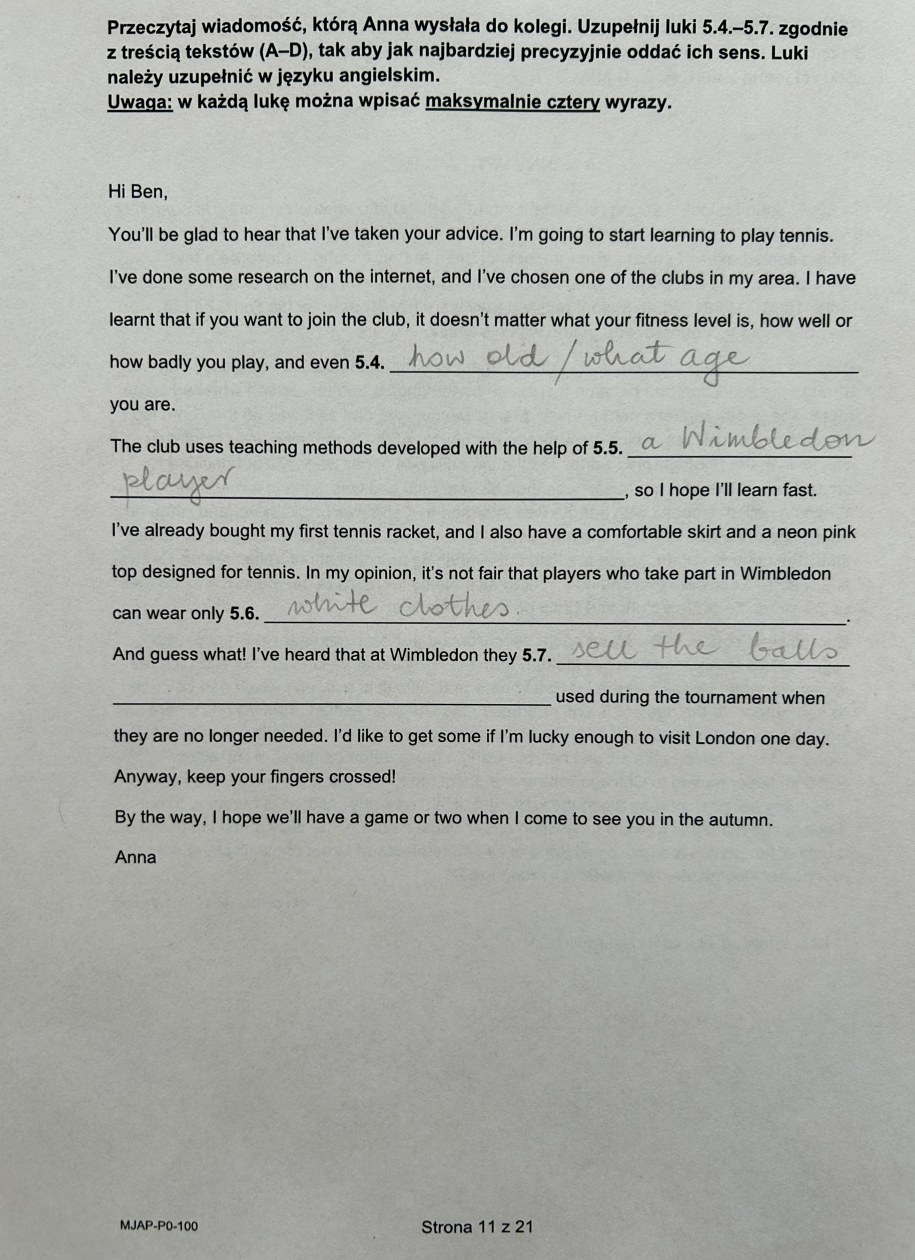 Przeczytaj wiadomość, którą Anna wysłała do kolegi. Uzupełnij luki 5.4.–5.7. zgodnie
z treścią tekstów (A–D), tak aby jak najbardziej precyzyjnie oddać ich sens. Luki
należy uzupełnić w języku angielskim.
Uwaga: w każdą lukę można wpisać maksymalnie cztery wyrazy.
Hi Ben,
You'll be glad to hear that I've taken your advice. I'm going to start learning to play tennis.
I've done some research on the internet, and I've chosen one of the clubs in my area. I have
learnt that if you want to join the club, it doesn't matter what your fitness level is, how well or
how badly you play, and even 5.4. how old / what age
you are.
The club uses teaching methods developed with the help of 5.5. a Wimbledon
player, so I hope I'll learn fast.
I've already bought my first tennis racket, and I also have a comfortable skirt and a neon pink
top designed for tennis. In my opinion, it's not fair that players who take part in Wimbledon
can wear only 5.6. white clothes.
And guess what! I've heard that at Wimbledon they 5.7. sell the balls
used during the tournament when
they are no longer needed. I'd like to get some if I'm lucky enough to visit London one day.
Anyway, keep your fingers crossed!
By the way, I hope we'll have a game or two when I come to see you in the autumn.
Anna
MJAP-P0-100
Strona 11 z 21